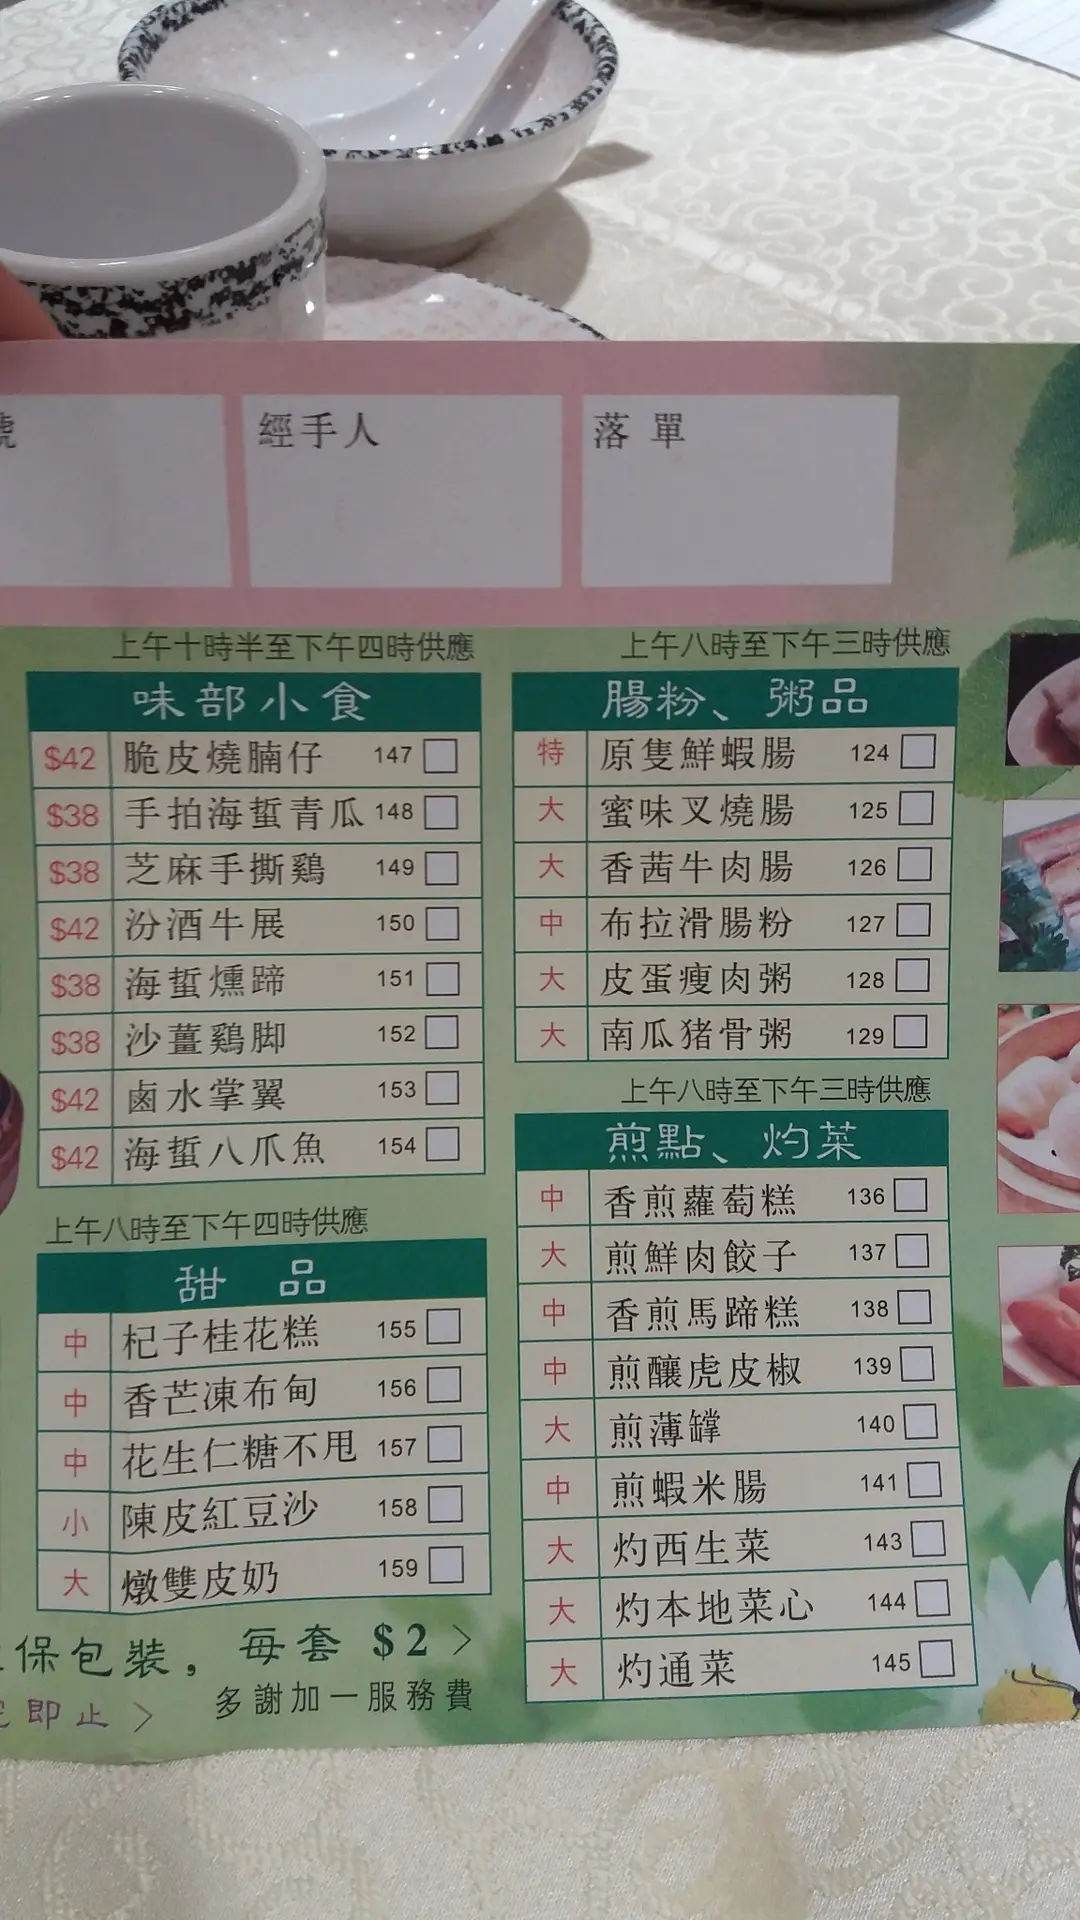 號
經手人
落 單
上午十時半至下午四時供應
味部小食
$42 脆皮燒腩仔 147
$38 手拍海蜇青瓜 148
$38 芝麻手撕鷄 149
$42 汾酒牛展 150
$38 海蜇燻蹄 151
$38 沙薑鷄脚 152
$42 鹵水掌翼 153
$42 海蜇八爪魚 154
上午八時至下午四時供應
甜 品
中 杞子桂花糕 155
中 香芒凍布甸 156
中 花生仁糖不甩 157
小 陳皮紅豆沙 158
大 燉雙皮奶 159
上午八時至下午三時供應
腸粉、粥品
特 原隻鮮蝦腸 124
大 蜜味叉燒腸 125
大 香茜牛肉腸 126
中 布拉滑腸粉 127
大 皮蛋瘦肉粥 128
大 南瓜猪骨粥 129
上午八時至下午三時供應
煎點、灼菜
中 香煎蘿蔔糕 136
大 煎鮮肉餃子 137
中 香煎馬蹄糕 138
中 煎釀虎皮椒 139
大 煎薄罉 140
中 煎蝦米腸 141
大 灼西生菜 143
大 灼本地菜心 144
大 灼通菜 145
保包裝，每套 $2>
即止>
多謝加一服務費